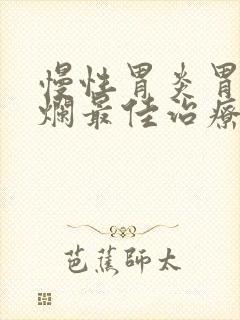 慢性胃炎胃
烂最佳治疗
芭蕉師太